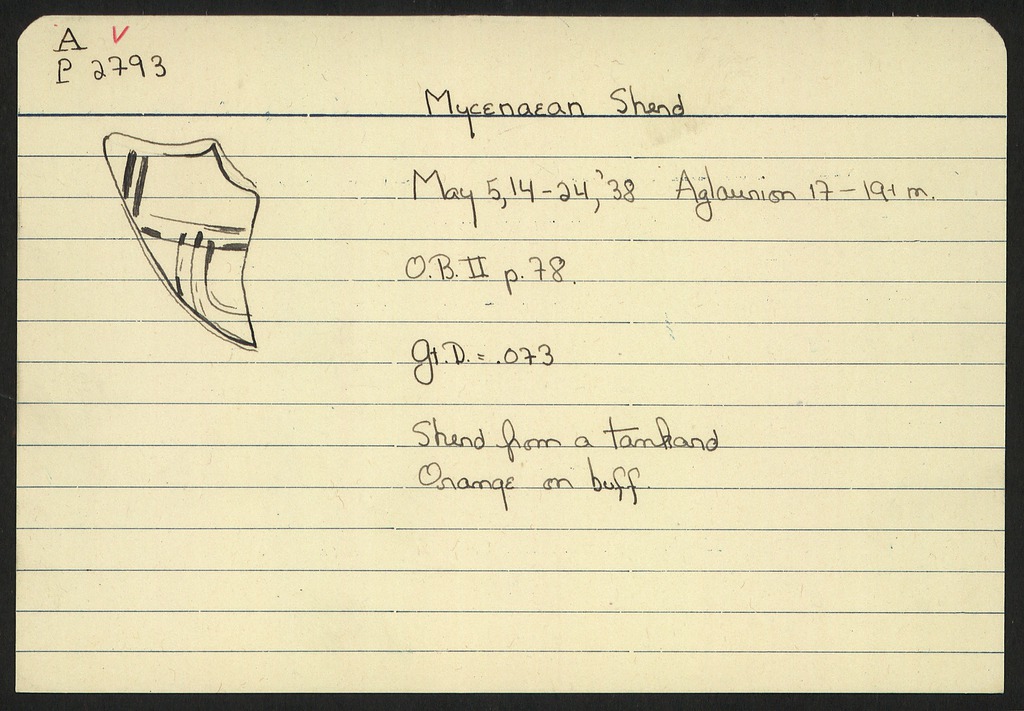 A V
P 2793
Mycenaean Sherd
May 5, 14-24, '38 Aglaurion 17-19+ m.
O.B. II p. 78.
Gt.D. = .073
Sherd from a tankard
Orange on buff.